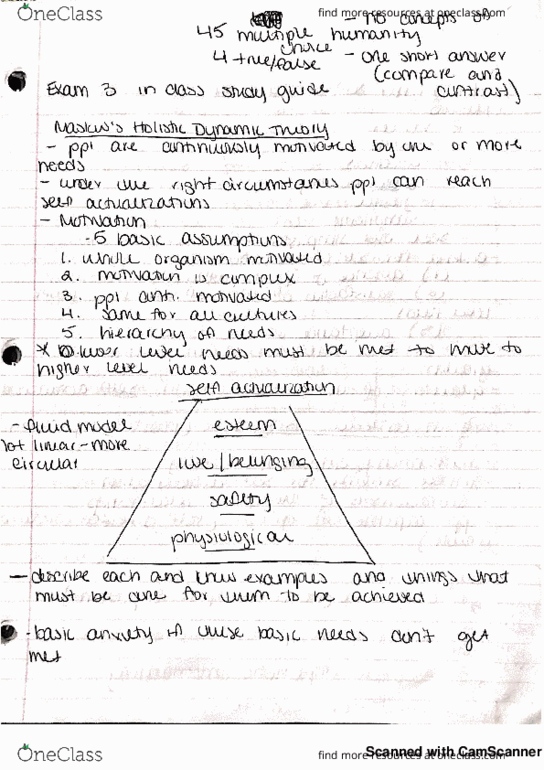 OneClass
find more resources at oneclass.com
- no concepts of
45 multiple humanity
choice
4 true/false - one short answer
(compare and
contrast)
Exam 3 in class study guide
Maslow's Holistic Dynamic Theory
- ppl are continuously motivated by one or more
needs
- under the right circumstances ppl can reach
self actualizations
- Motivation
- 5 basic assumptions
1. whole organism motivated
2. motivation is complex
3. ppl cont. motivated
4. same for all cultures
5. hierarchy of needs
* lower level needs must be met to move to
higher level needs
self actualization
- fluid model
not linear - more
circular
esteem
love/belonging
safety
physiological
- describe each and know examples and things that
must be done for them to be achieved
- basic anxiety if these basic needs don't get
met
OneClass
find more resources at oneclass.com
Scanned with CamScanner